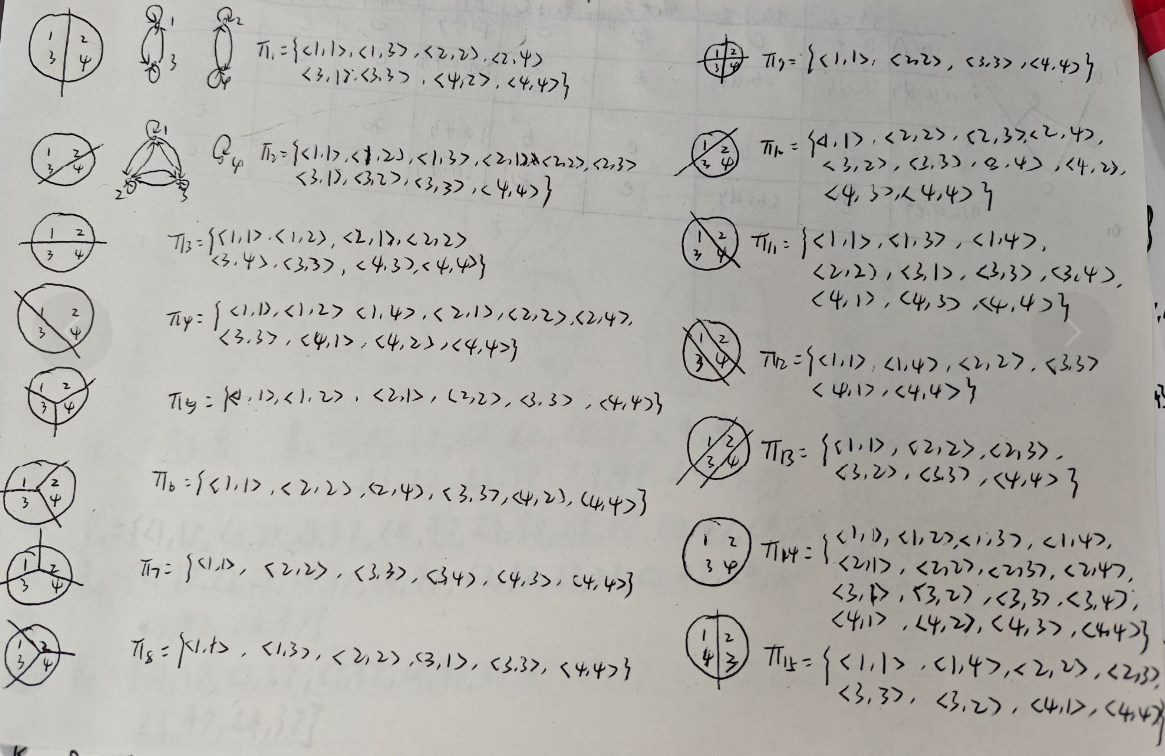 1 2
3 4
1
3
2
4
π₁={<1,1>,<1,3>,<2,2>,<2,4>
<3,1>,<3,3>,<4,2>,<4,4>}
1 2
3 4
1
2 3
4
π₂={<1,1>,<1,2>,<1,3>,<2,1>,<2,2>,<2,3>
<3,1>,<3,2>,<3,3>,<4,4>}
1 2
3 4
π₃={<1,1>,<1,2>,<2,1>,<2,2>
<3,4>,<3,3>,<4,3>,<4,4>}
1 2
3 4
π₄={<1,1>,<1,2>,<1,4>,<2,1>,<2,2>,<2,4>,
<3,3>,<4,1>,<4,2>,<4,4>}
1 2
3 4
π₅={<1,1>,<1,2>,<2,1>,<2,2>,<3,3>,<4,4>}
1 2
3 4
π₆={<1,1>,<2,2>,<2,4>,<3,3>,<4,2>,<4,4>}
1 2
3 4
π₇={<1,1>,<2,2>,<3,3>,<3,4>,<4,3>,<4,4>}
1 2
3 4
π₈={<1,1>,<1,3>,<2,2>,<3,1>,<3,3>,<4,4>}
1 2
3 4
π₉={<1,1>,<2,2>,<3,3>,<4,4>}
1 2
3 4
π₁₀={<1,1>,<2,2>,<2,3>,<2,4>,
<3,2>,<3,3>,<3,4>,<4,2>,
<4,3>,<4,4>}
1 2
3 4
π₁₁={<1,1>,<1,3>,<1,4>,
<2,2>,<3,1>,<3,3>,<3,4>,
<4,1>,<4,3>,<4,4>}
1 2
3 4
π₁₂={<1,1>,<1,4>,<2,2>,<3,3>
<4,1>,<4,4>}
1 2
3 4
π₁₃={<1,1>,<2,2>,<2,3>,
<3,2>,<3,3>,<4,4>}
1 2
3 4
π₁₄={<1,1>,<1,2>,<1,3>,<1,4>,
<2,1>,<2,2>,<2,3>,<2,4>,
<3,1>,<3,2>,<3,3>,<3,4>,
<4,1>,<4,2>,<4,3>,<4,4>}
1 2
4 3
π₁₅={<1,1>,<1,4>,<2,2>,<2,3>,
<3,3>,<3,2>,<4,1>,<4,4>}